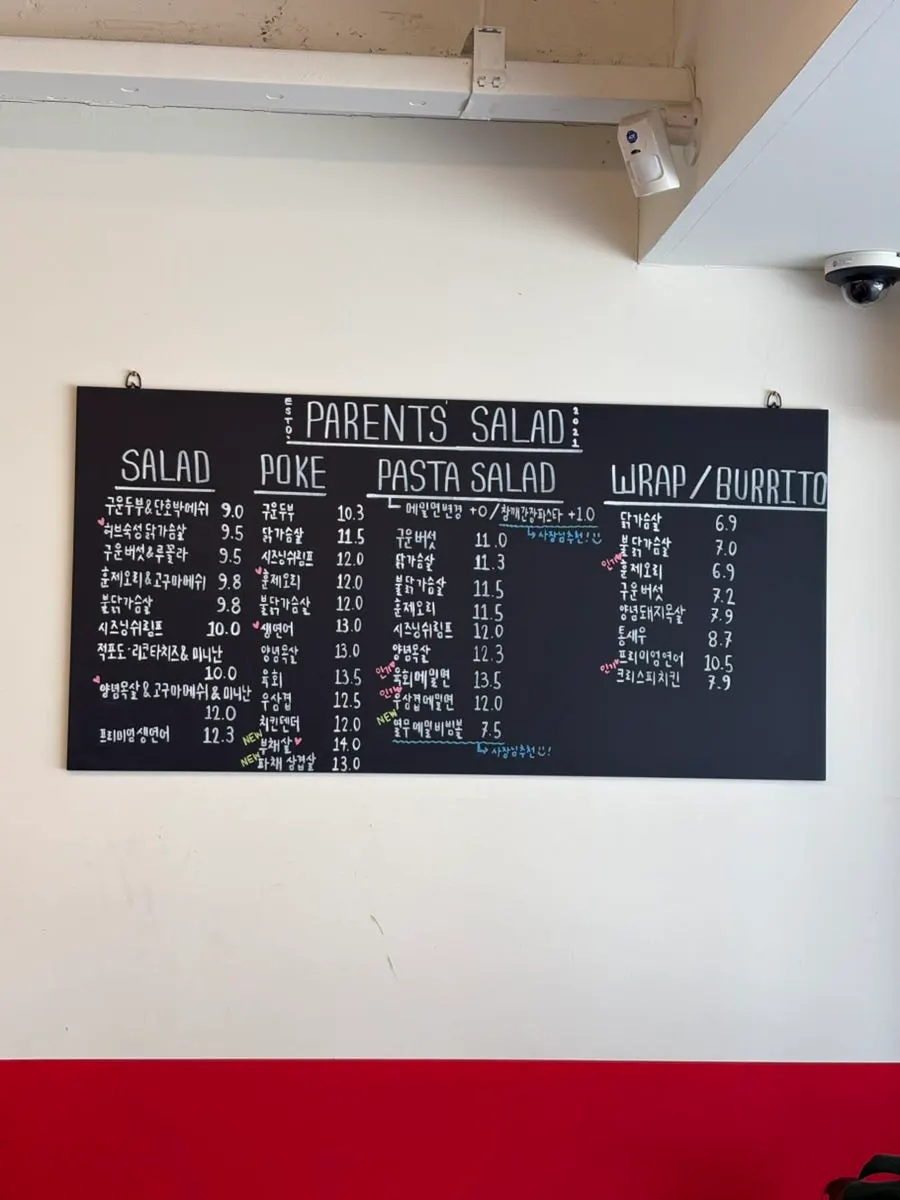 ESTD. PARENTS' SALAD 2021
SALAD
구운두부&단호박메쉬 9.0
허브숙성 닭가슴살 9.5
구운버섯&루꼴라 9.5
훈제오리&고구마메쉬 9.8
불닭가슴살 9.8
시즈닝쉬림프 10.0
적포도·리코타치즈& 미니난
10.0
양념목살 & 고구마메쉬 & 미니난
12.0
프리미엄생연어 12.3
POKE
구운두부 10.3
닭가슴살 11.5
시즈닝쉬림프 12.0
훈제오리 12.0
불닭가슴살 12.0
생연어 13.0
양념목살 13.0
육회 13.5
우삼겹 12.5
치킨텐더 12.0
NEW 부채살 14.0
NEW 파채 삼겹살 13.0
PASTA SALAD
메밀면변경 +0 / 참깨간장파스타 +1.0
사장님추천!
구운버섯 11.0
닭가슴살 11.3
불닭가슴살 11.5
훈제오리 11.5
시즈닝쉬림프 12.0
양념목살 12.3
인기 육회메밀면 13.5
인기 우삼겹메밀면 12.0
NEW 열무메밀비빔볼 7.5
사장님추천!
WRAP / BURRITO
닭가슴살 6.9
불닭가슴살 7.0
인기 훈제오리 6.9
구운버섯 7.2
양념돼지목살 7.9
통새우 8.7
프리미엄연어 10.5
인기 크리스피치킨 7.9